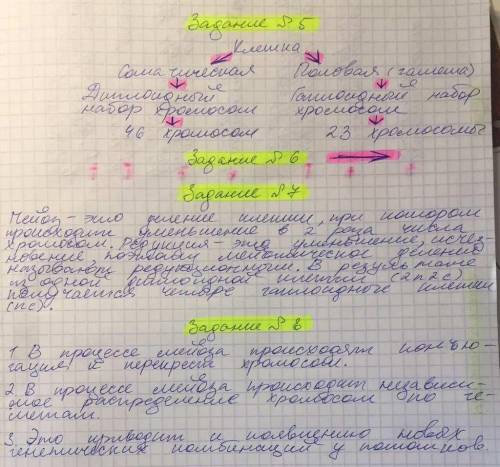 Задание № 5
Клетка
Соматическая Половая (гамета)
Диплоидный Гаплоидный набор
набор хромосом хромосом
46 хромосом 23 хромосомы
Задание № 6
Задание № 7
Мейоз - это деление клетки, при котором
происходит уменьшение в 2 раза числа
хромосом. Редукция - это уменьшение, исчез-
новение, поэтому мейотическое деление
называют редукционным. В результате
из одной диплоидной клетки (2n2c)
получается четыре гаплоидные клетки
(nc).
Задание № 8
1. В процессе мейоза происходят конъю-
гация и перекрест хромосом.
2. В процессе мейоза происходит независи-
мое распределение хромосом по га-
метам.
3. Это приводит к появлению новых
генетических комбинаций у потомков.